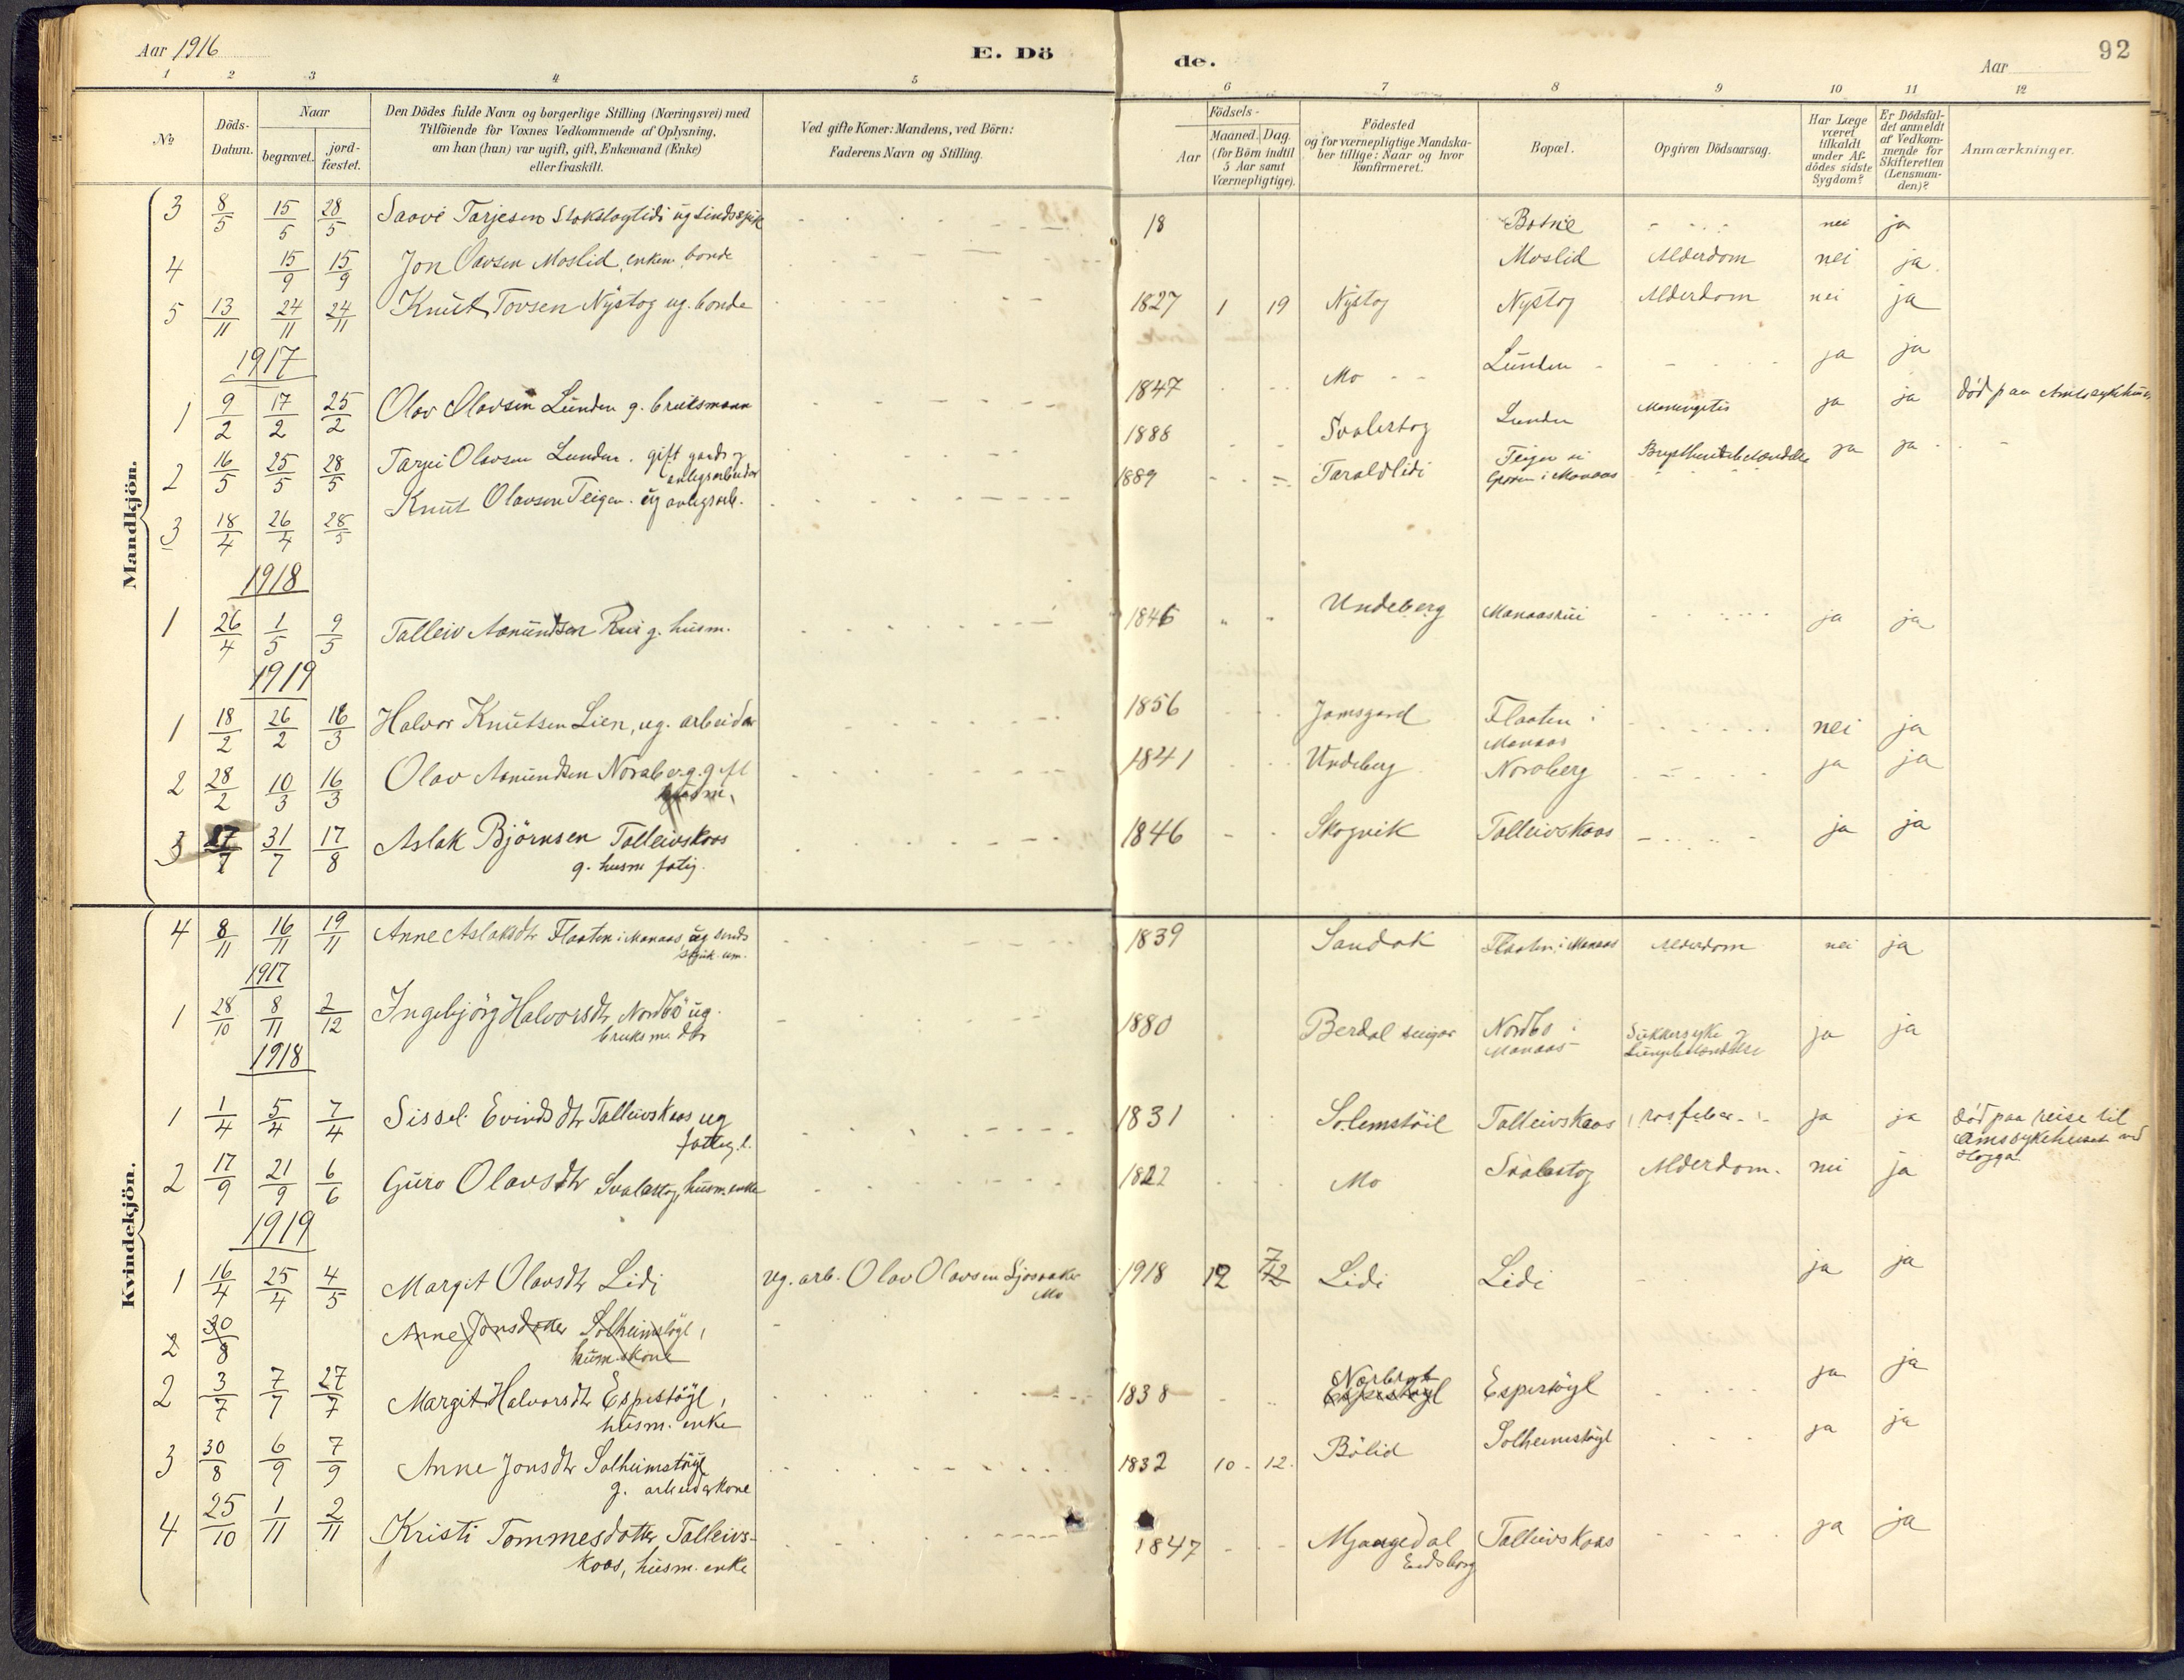 Aar 1916
E. Dö
de.
Aar
92
1 2 3 4 5 6 7 8 9 10 11 12
No
Döds-Datum.
Naar
begravet.
jord-fæstet.
Den Dödes fulde Navn og borgerlige Stilling (Næringsvei) med
Tilföiende for Voxnes Vedkommende af Oplysning,
om han (hun) var ugift, gift, Enkemand (Enke)
eller fraskilt.
Ved gifte Koner: Mandens, ved Börn:
Faderens Navn og Stilling.
Födsels-
Aar
Maaned. Dag.
(for Börn indtil
5 Aar samt
Værnepligtige).
Födested
og for værnepligtige Mandska-
ber tillige: Naar og hvor
konfirmeret.
Bopæl.
Opgiven Dödsaarsag.
Har Læge
været
tilkaldt
under Af-
dödes sidste
Sygdom?
Er Dödsfal-
det anmeldt
af Vedkom-
mende for
Skifteretten
(Lensman-
den)?
Anmærkninger.
Mandkjön.
3 8/5 15/5 28/5 Saave Tarjesen ug sindssyk 18 nei ja
4 15/9 15/9 Jon Oavsen Moslid, enkem. bonde Moslid Alderdom nei ja
5 13/11 24/11 24/11 Knut Tovsen Nystog ug. bonde 1827 1 19 Nystog Nystog Alderdom nei ja
1917
1 9/2 17/2 25/2 Olav Olavsen Lunden g. bruksmann 1847 Mo Lunden ja ja
2 16/5 25/5 28/5 Tarjei Olavsen Lunden. gift gards og
anlegsarbeidar 1888 Svalestog Lunden Meningitis ja ja död paa Amtssykehus
3 18/4 26/4 28/5 Knut Olavsen Teigen. ug anlegsarb. 1889 Taraldlidi Teigen i Manaas ja ja
1918
1 26/4 1/5 9/5 Talleiv Aamundsen Rui g. husm. 1846 Undeberg Manaasrui ja ja
1919
1 18/2 26/2 16/3 Halvor Knutsen Lien, ug. arbeidar 1856 Jamsgard Flaaten i
Manaas nei ja
2 28/2 10/3 16/3 Olav Aamundsen Noraberg. gift
husm. 1841 Undeberg Noraberg ja ja
3 17/7 31/7 17/8 Aslak Björnsen Talleivskaas
g. husm fatig. 1846 Skogvik Talleivskaas ja ja
Kvindekjön.
4 8/11 16/11 19/11 Anne Aslaksdtr Flaaten i Manaas, ug sinds
sjuk 1839 Sandok Flaaten i Manaas Alderdom nei ja
1917
1 28/10 8/11 2/12 Ingebjörg Halvorsdtr Nordbö ug.
bruksm. dtr 1880 Berdal Nordbö i
Manaas Sukkersyke og
Lungebetændelse ja ja
1918
1 1/4 5/4 7/4 Sissel Evindsdtr Talleivskaas ug
fattig l. 1831 Solemstöil Talleivskaas rosfeber ja ja död paa reise til
Amssykehuset ved
Hogga
2 17/9 21/9 6/6 Guro Olavsdtr Svalestog, husm. enke 1822 Mo Svalestog Alderdom. nei ja
1919
1 16/4 25/4 4/5 Margit Olavsdtr Lidi ug. arb. Olav Olavsen Ljosaaker
Mo 1918 12 7 Lidi Lidi ja ja
2 30/8 Anne Jonsdotter Solheimstöyl,
husm. kone
2 3/7 7/7 27/7 Margit Halvorsdtr Espestöyl,
husm. enke 1838 Espestöyl Espestöyl ja ja
3 30/8 6/9 7/9 Anne Jonsdtr Solheimstöyl
g. arbeidarkone 1832 10 12 Bölid Solheimstöyl ja ja
4 25/10 1/11 2/11 Kristi Tommesdotter Talleivs-
kaas, husm. enke 1847 Mjaugedal
Eidsborg Talleivskaas ja ja